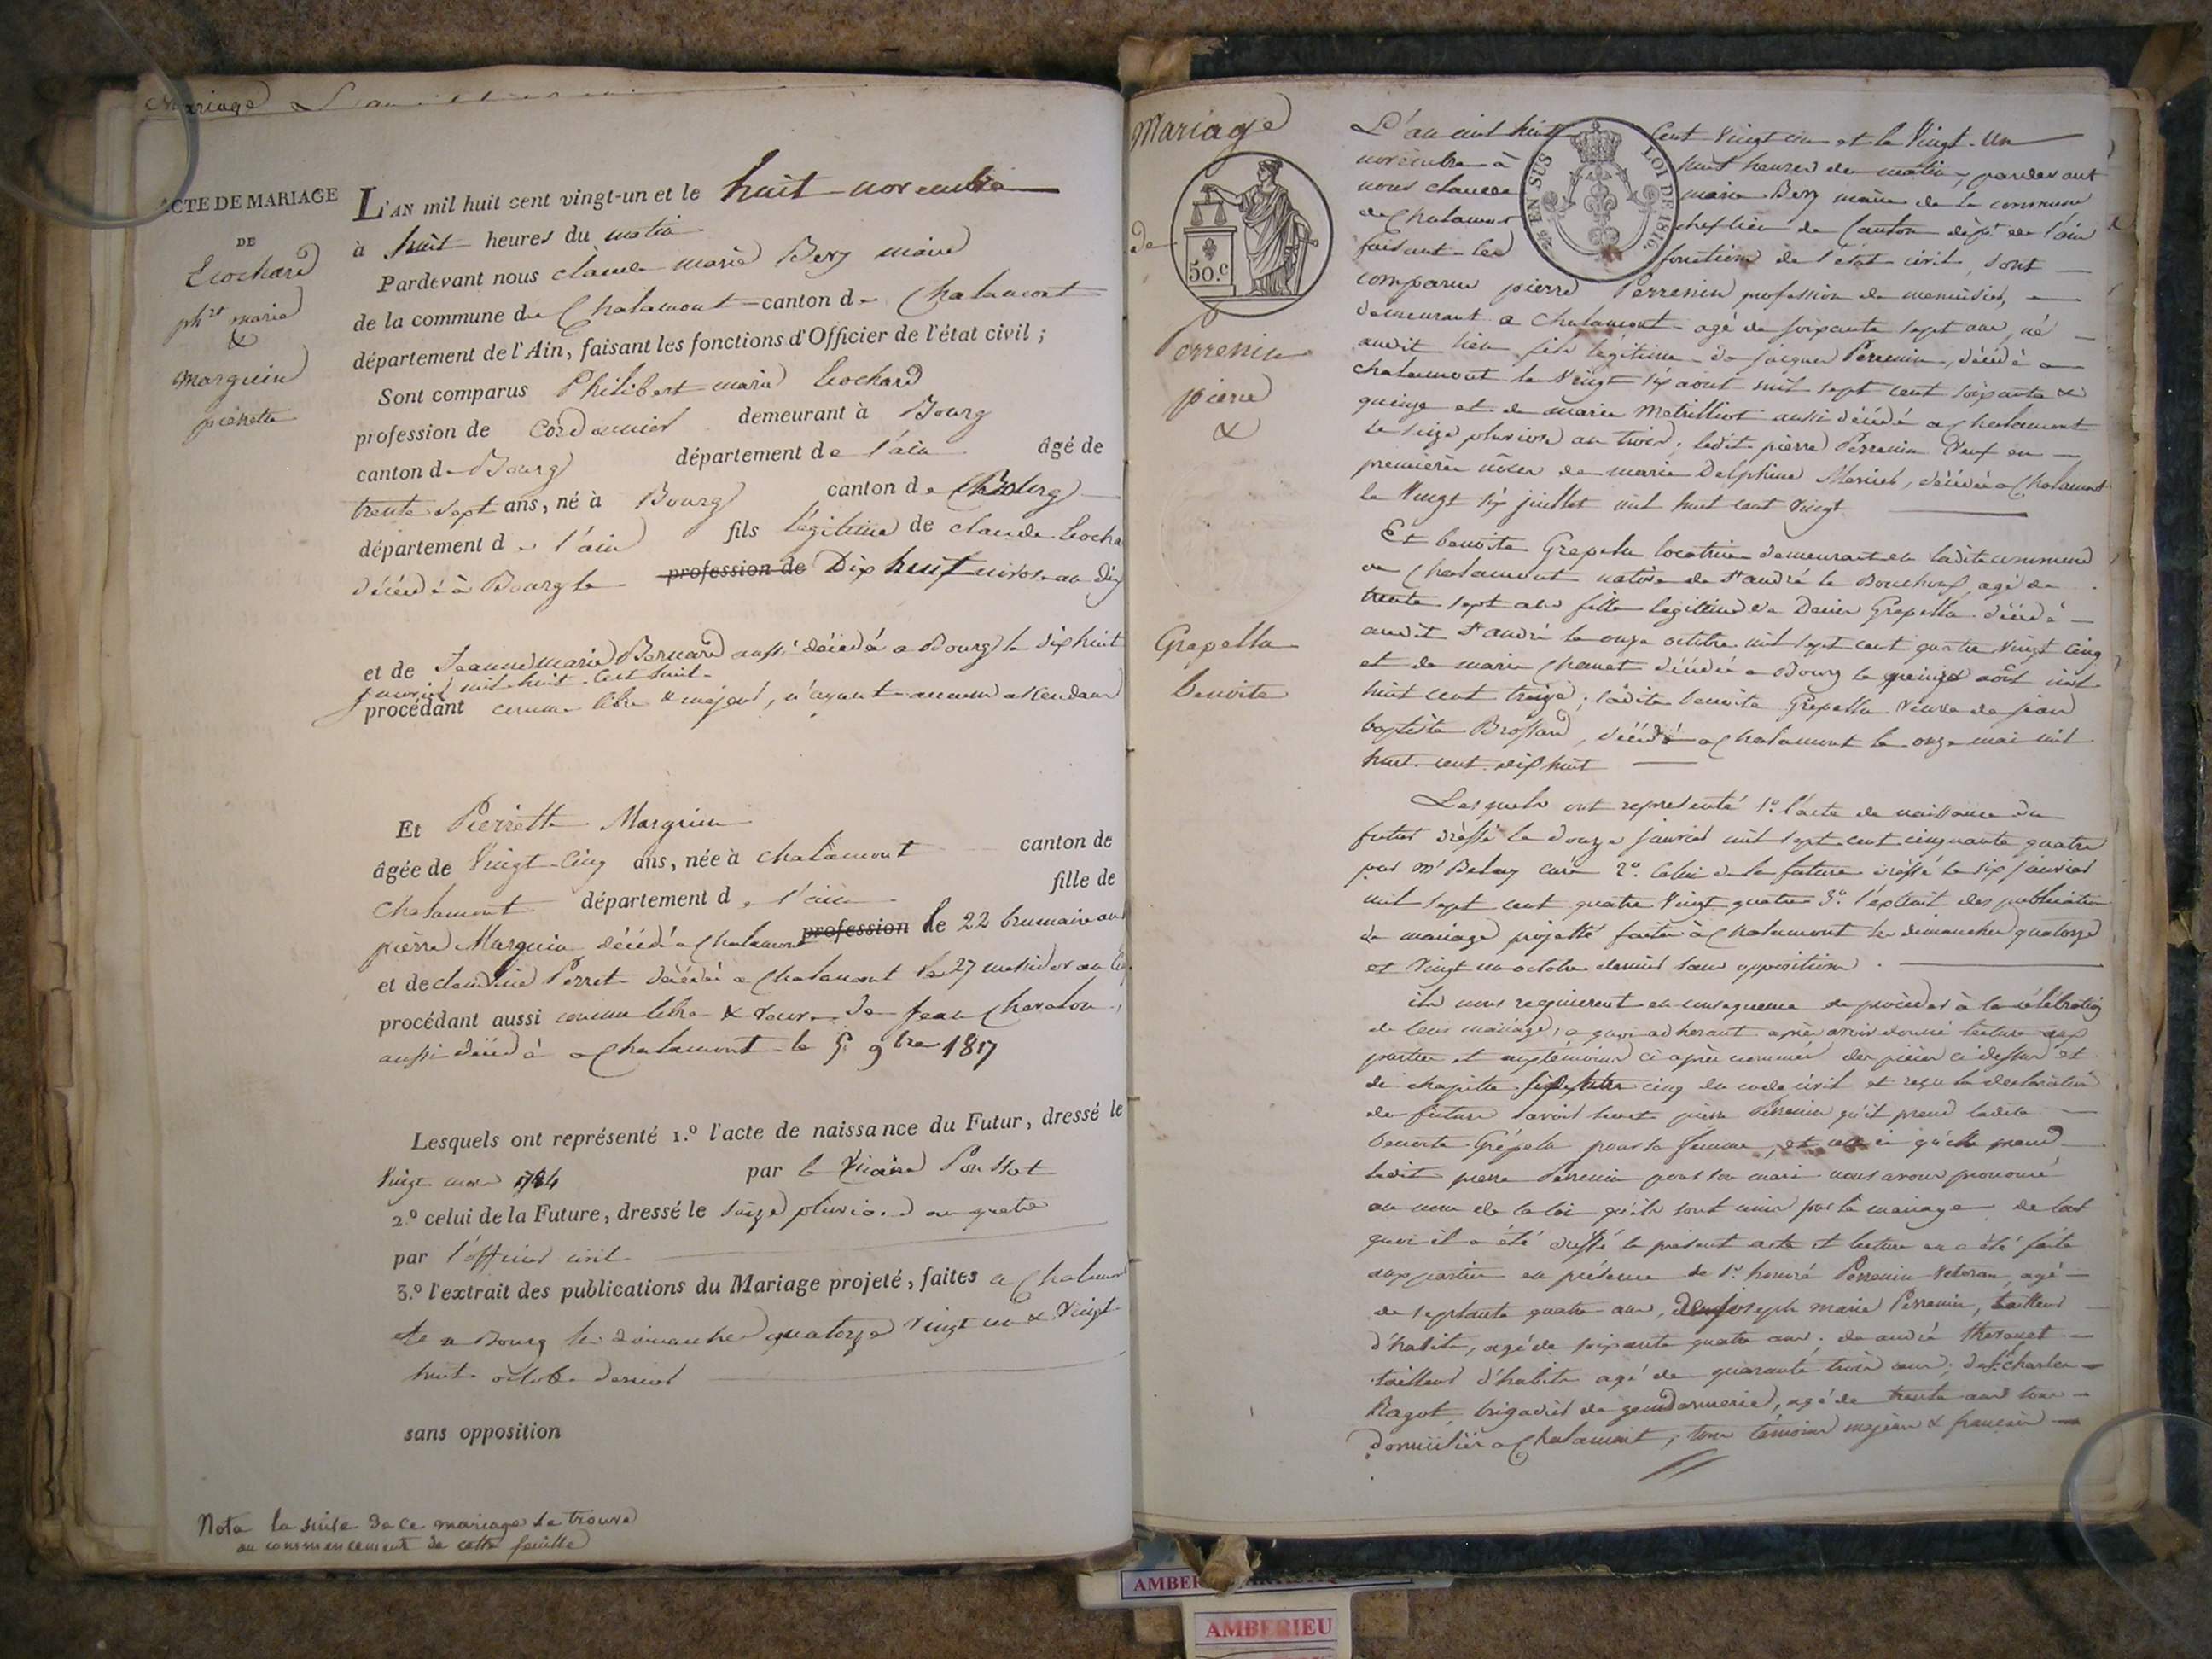 Mariage
ACTE DE MARIAGE
DE
Ecochard
phrt marie
&
Marguin
pierrette
L'AN mil huit cent vingt-un et le huit novembre
à huit heures du matin
Pardevant nous claude marie Bery maire
de la commune de Chalamont canton de Chalamont
département de l'Ain, faisant les fonctions d'Officier de l'état civil ;
Sont comparus Philibert marie Ecochard
profession de Cordonnier demeurant à Bourg
canton de Bourg département de l'ain âgé de
trente sept ans, né à Bourg canton de Bourg
département de l'ain fils légitime de claude Ecocha
décédé à Bourg le profession de Dix huit nivose an Dix
et de Jeanne marie Bernard aussi décédé a Bourg le dix huit
janvier mil huit cent huit
procédant comme libre & majeur, n'ayant aucun ascendans
Et Pierrette Marguin
âgée de Vingt-Cinq ans, née à chalamont canton de
Chalamont département de l'ain fille de
pierre Marguin décédé a Chalamont profession le 22 brumaire an
et de claudine Perret décédée a Chalamont le 27 messidor an
procédant aussi comme libre & veuve de jean Chevalon
aussi décédé à Chalamont le 9bre 1817
Lesquels ont représenté 1.º l'acte de naissance du Futur, dressé le
Vingt mars 1784 par le Vicaire Poussot
2.º celui de la Future, dressé le seize pluviose an quatre
par l'officier civil
3.º l'extrait des publications du Mariage projeté, faites a Chalamont
et a Bourg les dimanches quatorze vingt un & Vingt
huit octobre dernier
sans opposition
Nota la suite de ce mariage se trouve
au commencement de cette feuille
Mariage
de
50.c
EN SUS
LOI DE 1816.
Perrenin
pierre
&
Grepella
benoite
L'an mil huit Cent vingt un et le Vingt-Un
novembre à huit heures du matin, pardevant
nous claude marie Bery maire de la commune
de Chalamont chef lieu de Canton dépt de l'ain
faisant les fonctions de l'état civil, sont
comparus pierre Perrenin profession de menuisier,
demeurant a Chalamont agé de soixante sept ans, né
audit lieu fils légitime de jacques Perrenin, décédé a
chalamont le Vingt six aout mil sept cent soixante &
quinze et de marie Metrilliot aussi décédé a chalamont
le seize pluviose an trois, ledit pierre Perrenin Veuf en
premières nôces de marie Delphine Meriel, décédée a Chalamont
le Vingt six juillet mil huit cent Vingt
Et benoite Grepella locatrice demeurant en ladite commune
de Chalamont native de St andré le Bouchoux agé de
trente sept ans fille légitime de Denis Grepella décédé
audit St andré le onze octobre mil sept cent quatre Vingt Cinq
et de marie Chanet décédée a Bourg le quinze août mil
huit cent treize ; ladite benoite Grepella veuve de jean
baptiste Brossard, décédé a Chalamont le onze mai mil
huit cent dix huit
Lesquels ont représenté 1º l'acte de naissance du
futur dréssé le douze janvier mil sept cent cinquante quatre
par mr Belay curé 2º Celui de la future dréssé le six janvier
mil sept cent quatre Vingt quatre 3º l'extrait des publications
de mariage projetté faites à Chalamont les dimanches quatorze
et Vingt un octobre dernier sans opposition.
ils nous requierent en conséquence de procéder à la célébration
de leur mariage, a quoi adherant après avoir donné lecture aux
parties et aux témoins ci après nommés des pièces ci dessus et
du chapitre six du titre cinq du code civil et reçu la déclaration
des futurs savoir pierre Perrenin qu'il prend ladite
benoite Grépella pour sa femme, et celle ci qu'elle prend
ledit pierre Perrenin pour son mari nous avons prononcé
au nom de la loi qu'ils sont unis par le mariage de tout
quoi il a été dréssé le présent acte et lecture en a été faite
aux parties en présence de Sr honoré Perrenin Veteran, agé
de septante quatre ans, de joseph marie Perrenin, tailleur
d'habits, agé de soixante quatre ans. de andré thevenet
tailleur d'habits agé de quarante trois ans, de Sr charles
Ragot, brigadier de gendarmerie, agé de trente ans tous
domiciliés a Chalamont, tous témoins majeurs & français
AMBERIEU